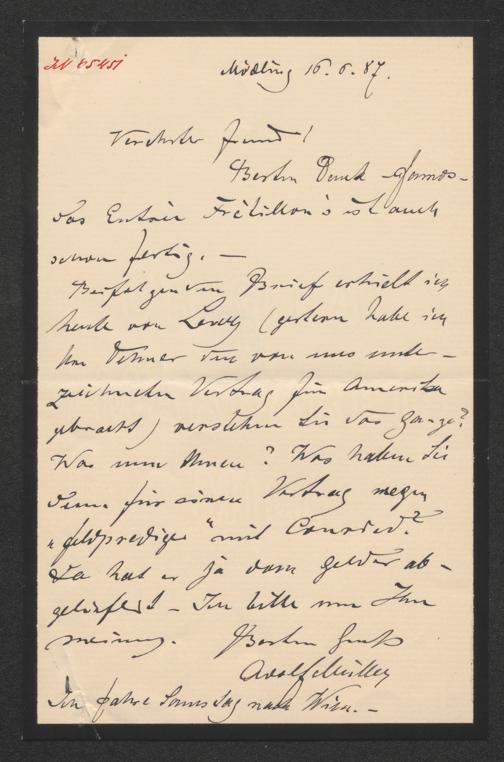 Mödling 16. 6. 87.
Verehrter Freund!
Besten Dank – famos –
das Entrée Frétillon's ist auch
schon fertig. –
Beifolgenden Brief erhielt ich
heute von Lewy (gestern habe ich
ihm den von uns unter–
zeichneten Vertrag für Amerika
gebracht) verstehen Sie das Ganze?
Was nun thuen? Was haben Sie
denn für einen Vertrag wegen
„Feldprediger“ mit Conried?
Da hat er ja dann Gelder ab–
geliefert – Ich bitte um Ihre
Meinung. Besten Gruß
Adolf Müller
Ich fahre Samstag nach Wien. –